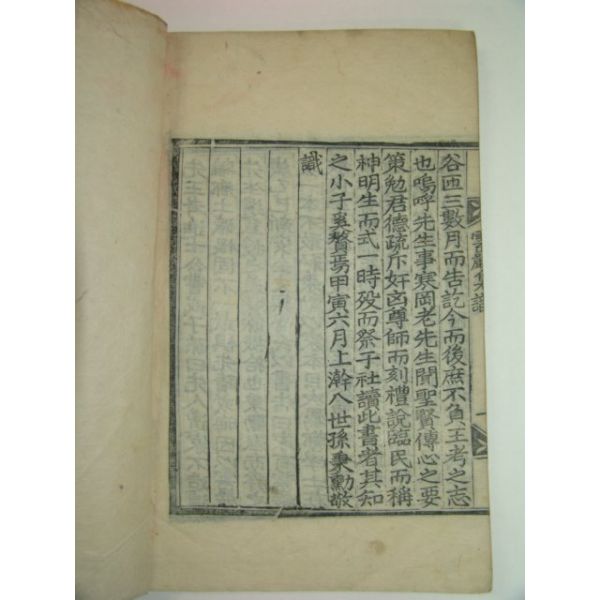 谷而三數月而告訖今而後庶不負王考之志
也嗚呼先生事寒岡老先生聞聖賢傳心之要
策勉君德疏斥奸凶尊師而刻禮說臨民而稱
神明生而式一時歿而祭于社讀此書者其知
之小子奚贅焉甲寅六月上澣八世孫秉勳敬
識